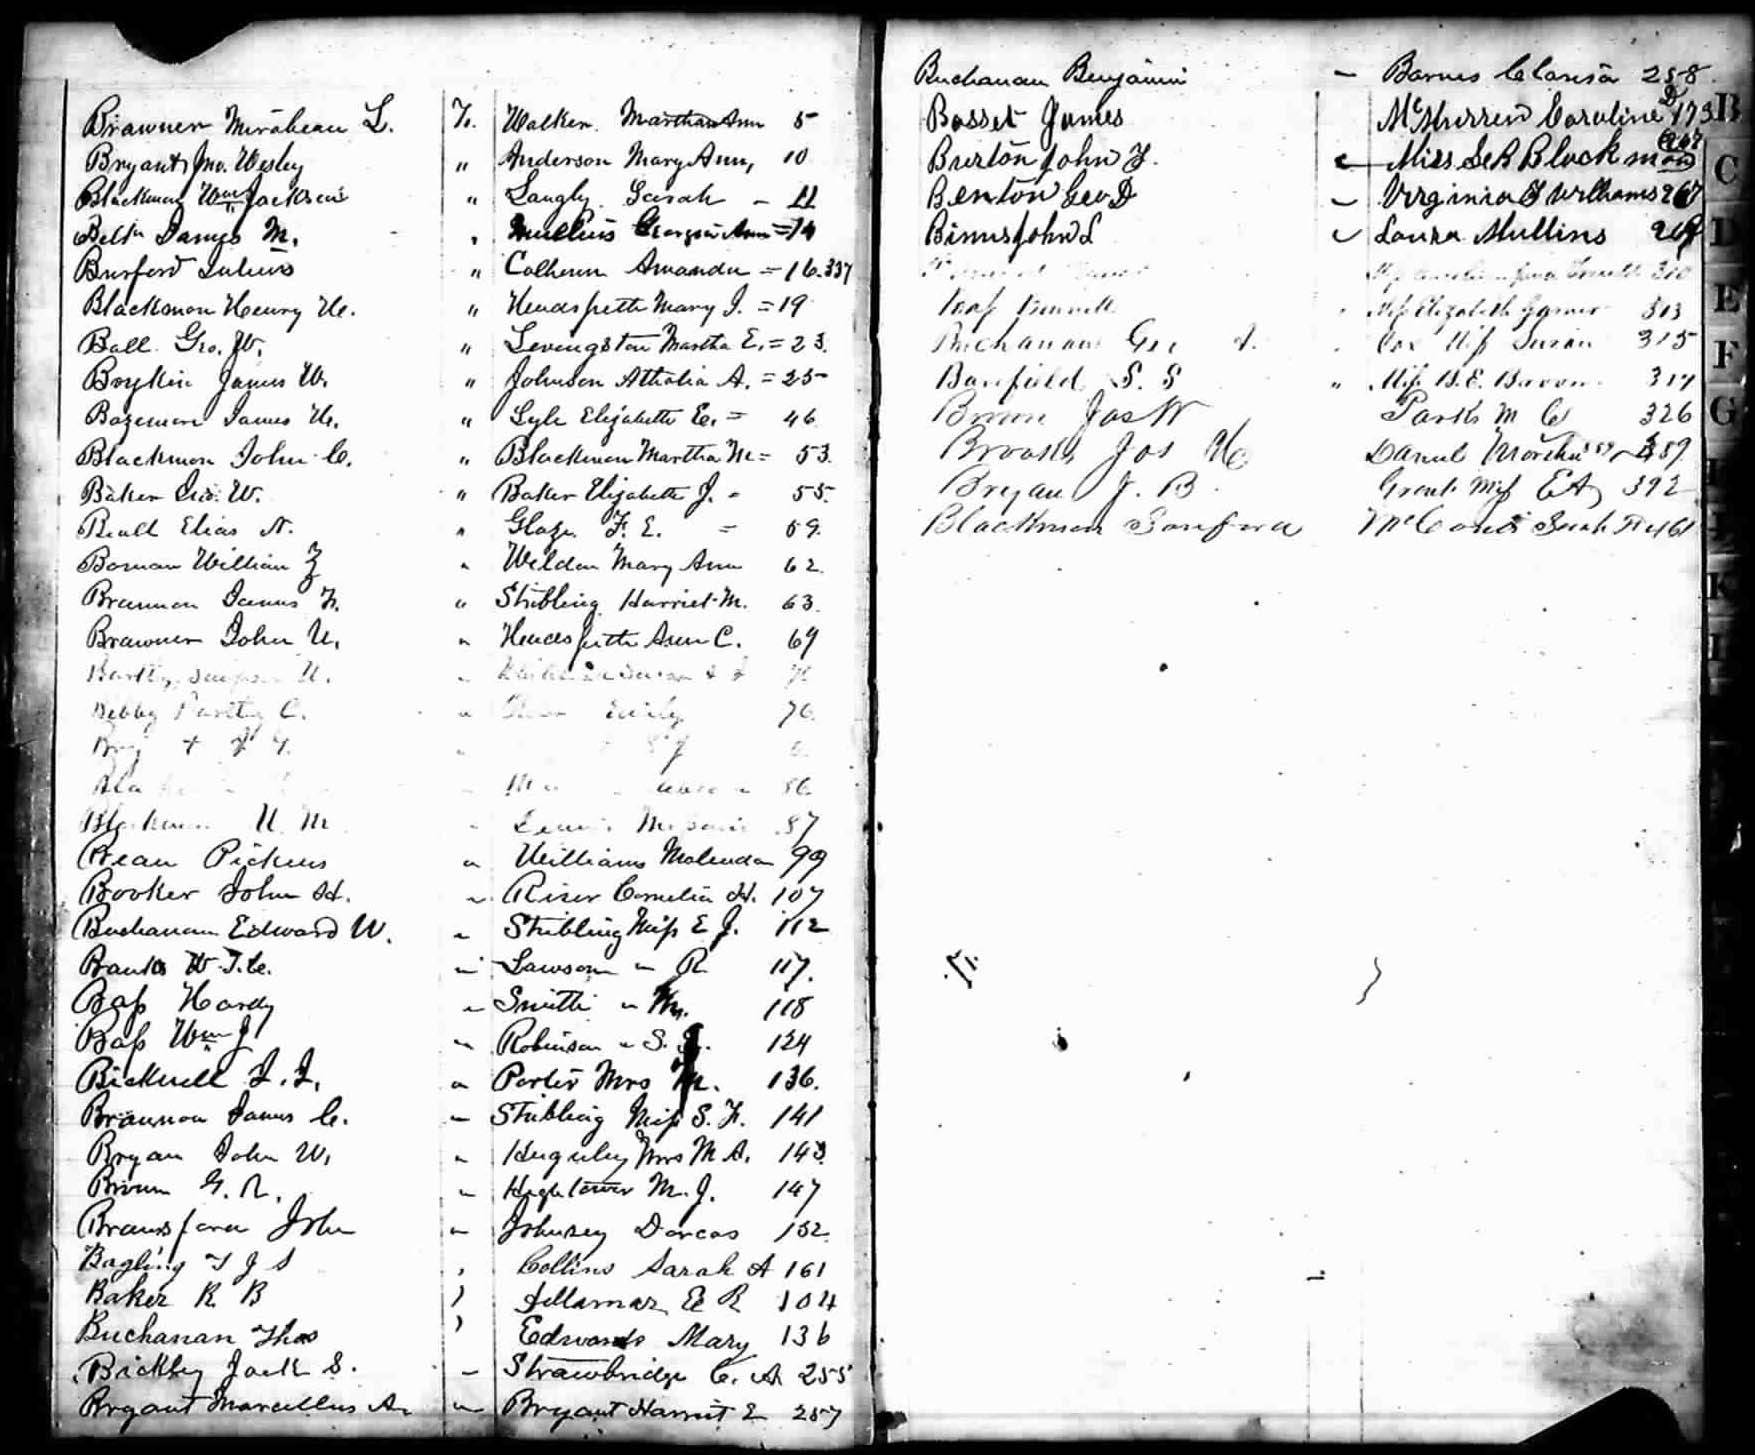 Brawner Mirabeau L. To. Walker Martha Ann 5
Bryant Jno. Wesley " Anderson Mary Ann, 10
Blackmon Wm Jackson " Langly Sarah - 11
Belt James M. " Mullins Georgia Ann = 14
Burford Julius " Calhoun Amanda = 16.337
Blackmon Henry H. " Hendspeth Mary J. = 19
Ball Geo. W. " Levingston Martha E. = 23.
Boykin James W. " Johnson Athalia A. = 25
Bozeman James H. " Lyle Elizabeth E. = 46
Blackmon John C. " Blackmon Martha M = 53.
Baker Geo. W. " Baker Elizabeth J. - 55.
Beall Elias N. " Glaze F. E. = 59.
Boman William Z " Weldon Mary Ann 62.
Brannon James F. " Stribling Harriet M. 63.
Brawner John H. " Hendspeth Ann C. 64
Bartley H.
Bebby C. " Emily 76.
86.
Blackmon H M 87
Bean Pickens " Williams Malinda 99
Booker John H. " Riser Cornelia H. 107
Buchanan Edward W. " Stribling Miss E J. 112
Banks W. T. C. " Lawson " R 117.
Bass Hardy " Smith " M. 118
Bass Wm J " Robinson " S. 124
Bicknell J. J. " Porter Mrs M. 136.
Brannon James C. " Stribling Miss S. F. 141
Bryan John W. " Huguley Mrs M A. 143.
Brown G. R. " Hightower M. J. 147
Bransford John " Johnsey Dorcas 152
Bagling T J S , Collins Sarah A 161
Baker R B ) Dellamar E R 104
Buchanan Thos ) Edwards Mary 136
Bickley Jack S. - Strawbridge C. A 255
Bryant Marcellus A. " Bryant Harriet E 257
Buchanan Benjamin - Barnes Clarisa 258.
Basset James McMurren Caroline D 173
Burton John F. Miss S A R Blackmon 267
Benton Geo D - Virginia F Williams 267
Binns John L Laura Mullins 269
310
Bass Miss Elizabeth Garner 313
Buchanan Geo A. Cox Miss Susan 315
Banfield S. S " Miss B. E. Barron 317
Brown Jas W Parks M C 326
Brooks Jos Daniel Martha 359
Bryan J. B. Grant Miss E A 392
Blackmon Sanford Sarah 461
B
C
D
E
F
G
K